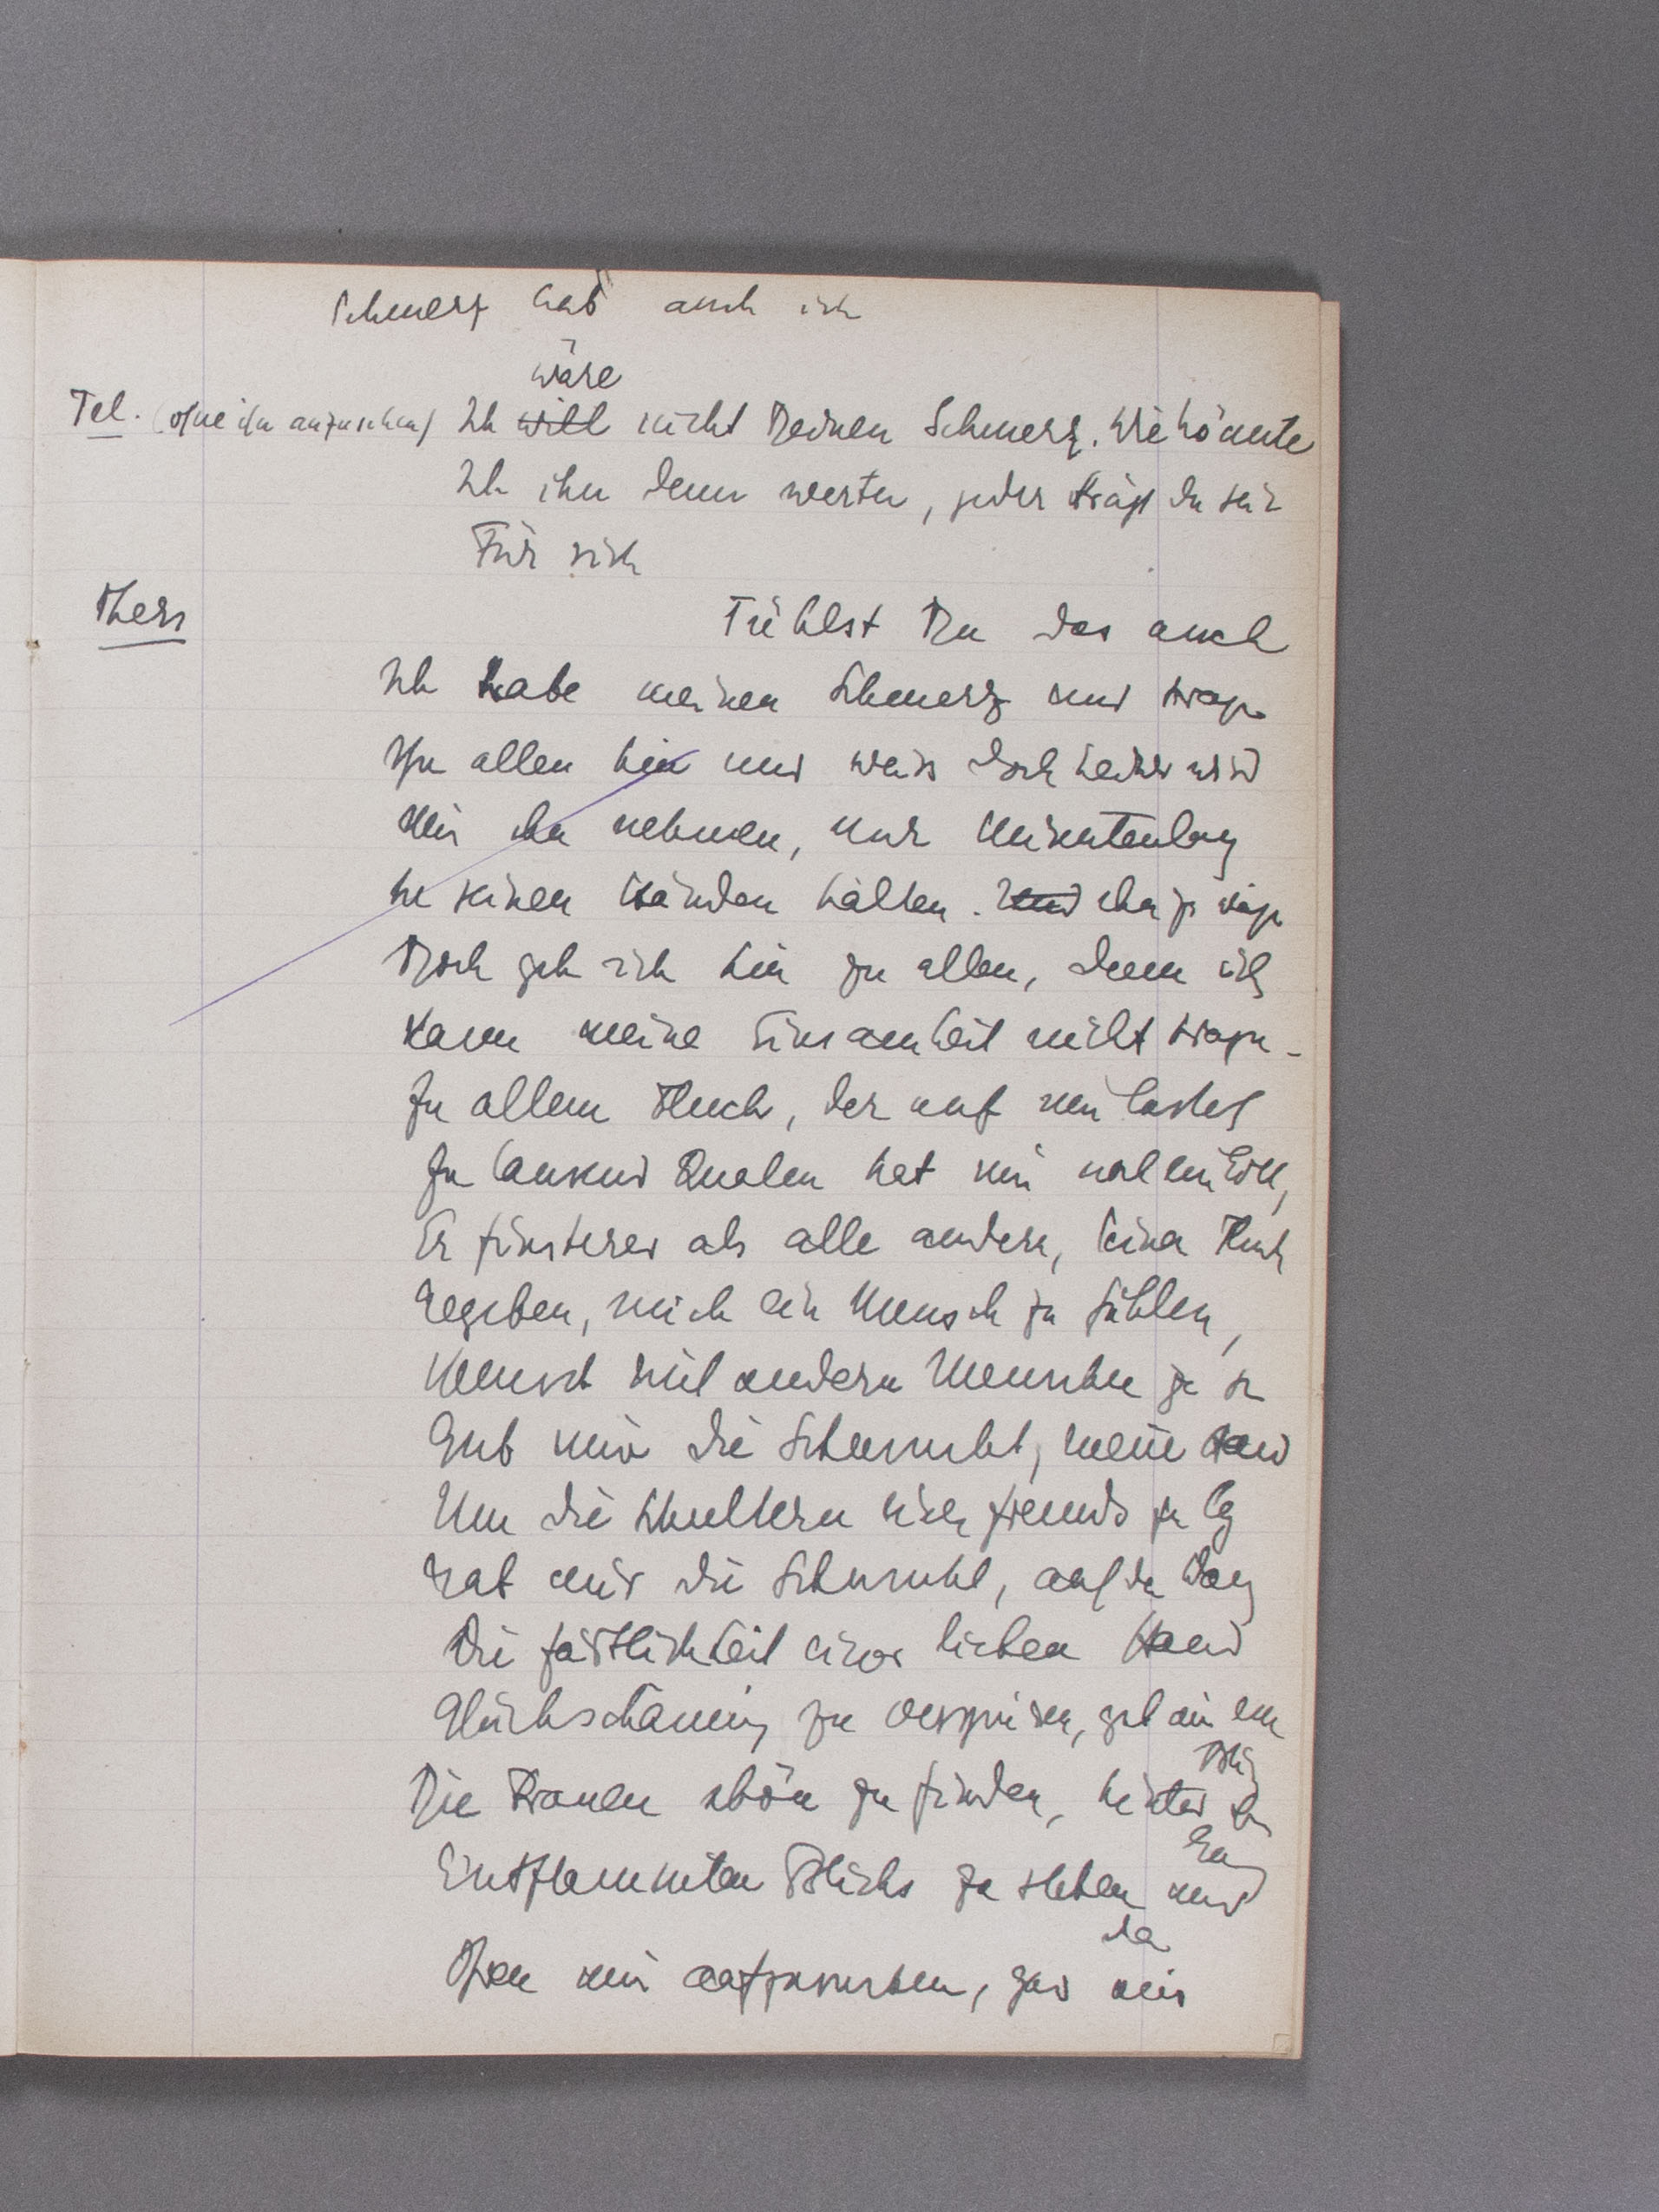 Schmerz hab auch ich
wäre
Tel. (ohne ihn anzusehen) Ich will nicht Deinen Schmerz. Wie könnte
Ich ihn denn werten, jeder trägt
Für sich
Thers
Fühlst Du das auch
Ich habe meinen Schmerz und trage
Ihn allen hin und weiss doch keiner wird
Mir ihn nehmen, nur Minutenlang
In seinen Händen halten. Und
Doch geh ich hin zu allen, denn ich
Kann meine Einsamkeit nicht tragen
Zu allem Fluch, der auf mir lastet
Zu tausend Qualen hat mir
Er finsterer als alle andern, keine
Gegeben, mich ein Mensch zu fühlen,
Mensch mit andern Menschen zu
Gab mir die Sehnsucht, meine Hand
Um die Schultern eines Freunds zu
Gab mir die Sehnsucht, auf der
Die Zärtlichkeit einer lieben Hand
Glückschauernd zu verspüren,
Die Frauen schön zu finden, hinter
Entflammten Blicks zu stehen und
da
mir